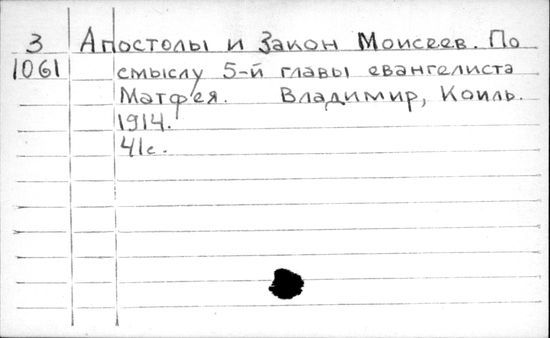 З Апостолы и Закон Моисеев. По
1061 смыслу 5-й главы евангелиста
Матфея. Владимир, Коиль.
1914.
41с.